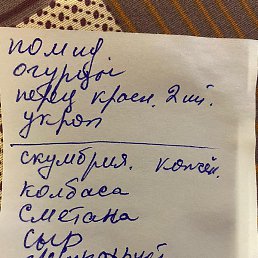 помид
огурці
перец красн. 2 шт.
укроп
скумбрия. копчен.
колбаса
сметана
сыр